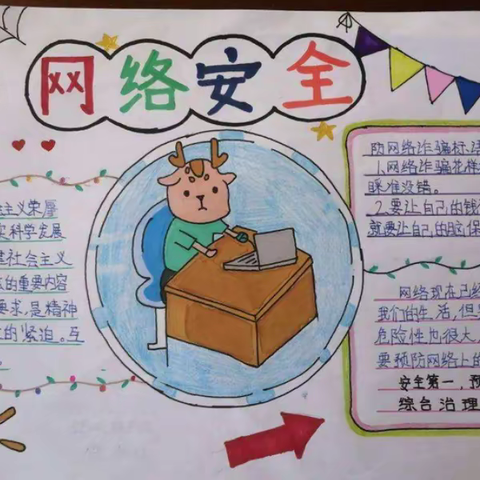 网络安全
主义荣辱
科学发展
社会主义
的重要内容
要求,是精神
的紧迫。互
防网络诈骗标语
1.网络诈骗花样
睬准没错。
2.要让自己的钱
就要让自己的脑保
网络现在已经
我们的生活,但
危险性也很大,
要预防网络上的
安全第一,预
综合治理